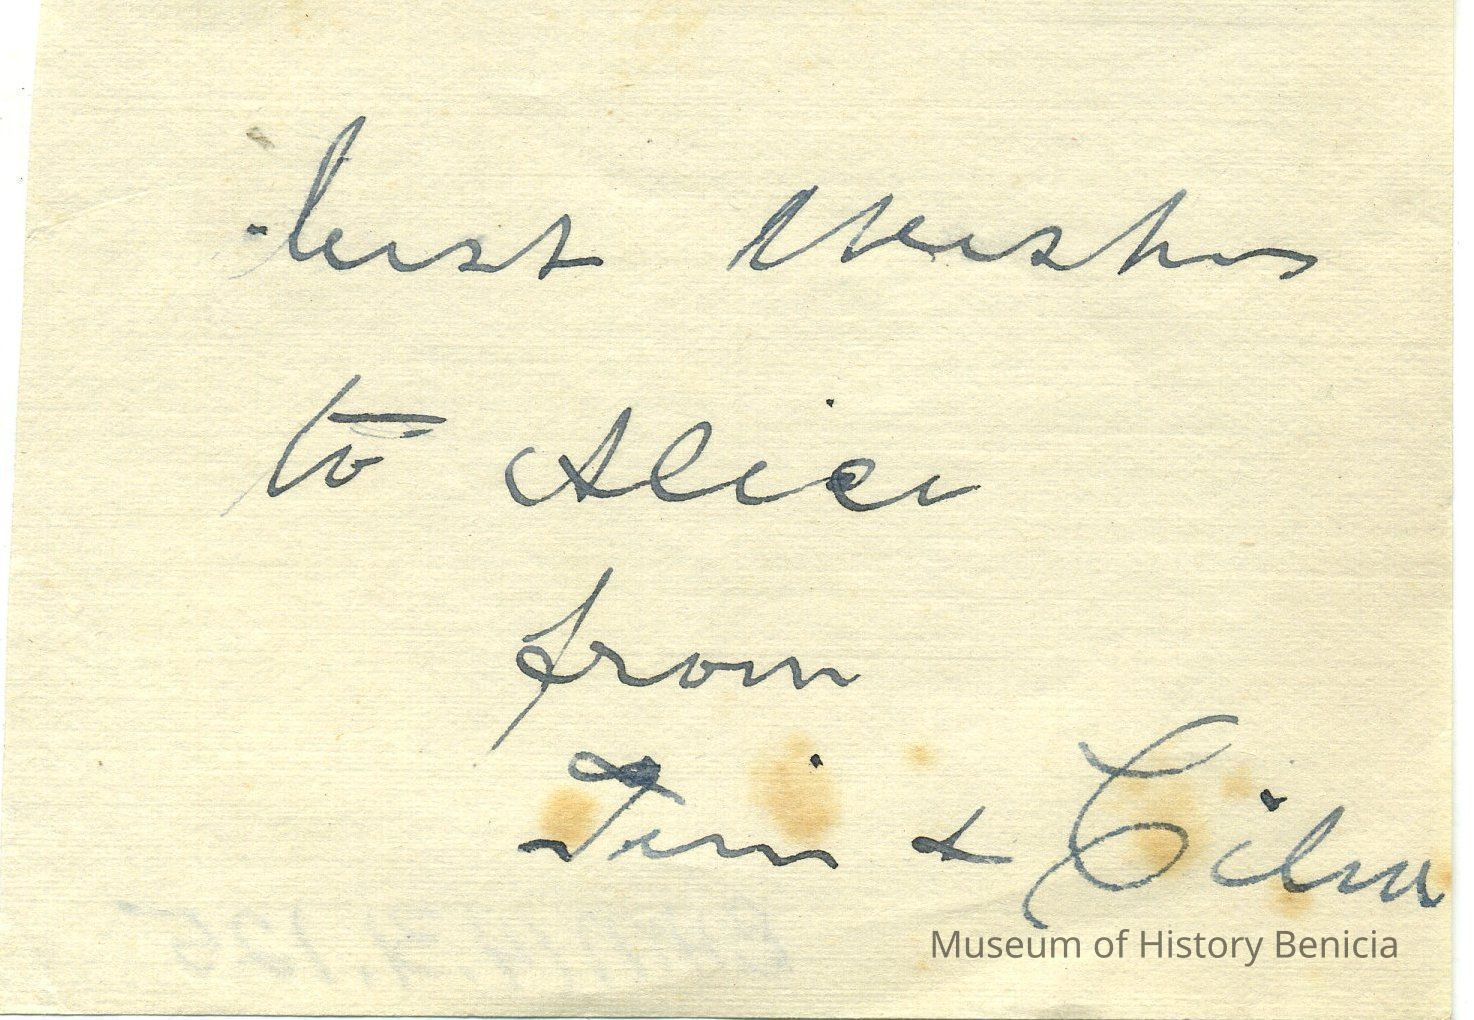 best Wishes
to Alice
from
&
Museum of History Benicia